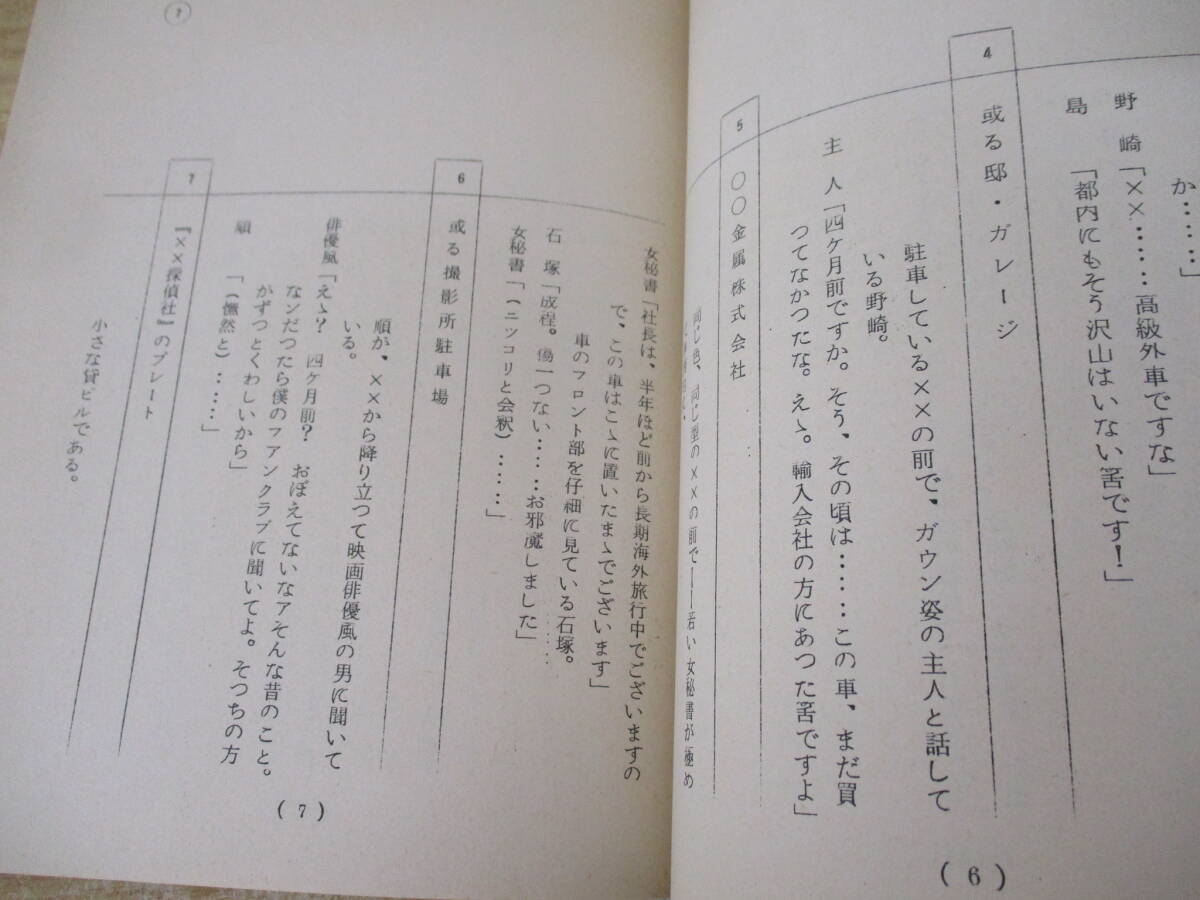 か……」
野崎「××……高級外車ですな」
島「都内にもそう沢山はいない筈です！」
4 或る邸・ガレージ
駐車している××の前で、ガウン姿の主人と話して
いる野崎。
主人「四ケ月前ですか。そう、その頃は……この車、まだ買
つてなかつたな。えゝ。輸入会社の方にあつた筈ですよ」
5 〇〇金属株式会社
同じ色、同じ型の××の前で――若い女秘書が極め
(6)
女秘書「社長は、半年ほど前から長期海外旅行中でございますの
で、この車はこゝに置いたまゝでございます」
車のフロント部を仔細に見ている石塚。
石塚「成程。傷一つない……お邪魔しました」
女秘書「(ニツコリと会釈)……」
6 或る撮影所駐車場
順が、××から降り立つて映画俳優風の男に聞いて
いる。
俳優風「えゝ？ 四ケ月前？ おぼえてないなアそんな昔のこと。
なンだつたら僕のフアンクラブに聞いてよ。そつちの方
がずつとくわしいから」
順「(憮然と)……」
7 『××探偵社』のプレート
小さな貸ビルである。
(7)
7